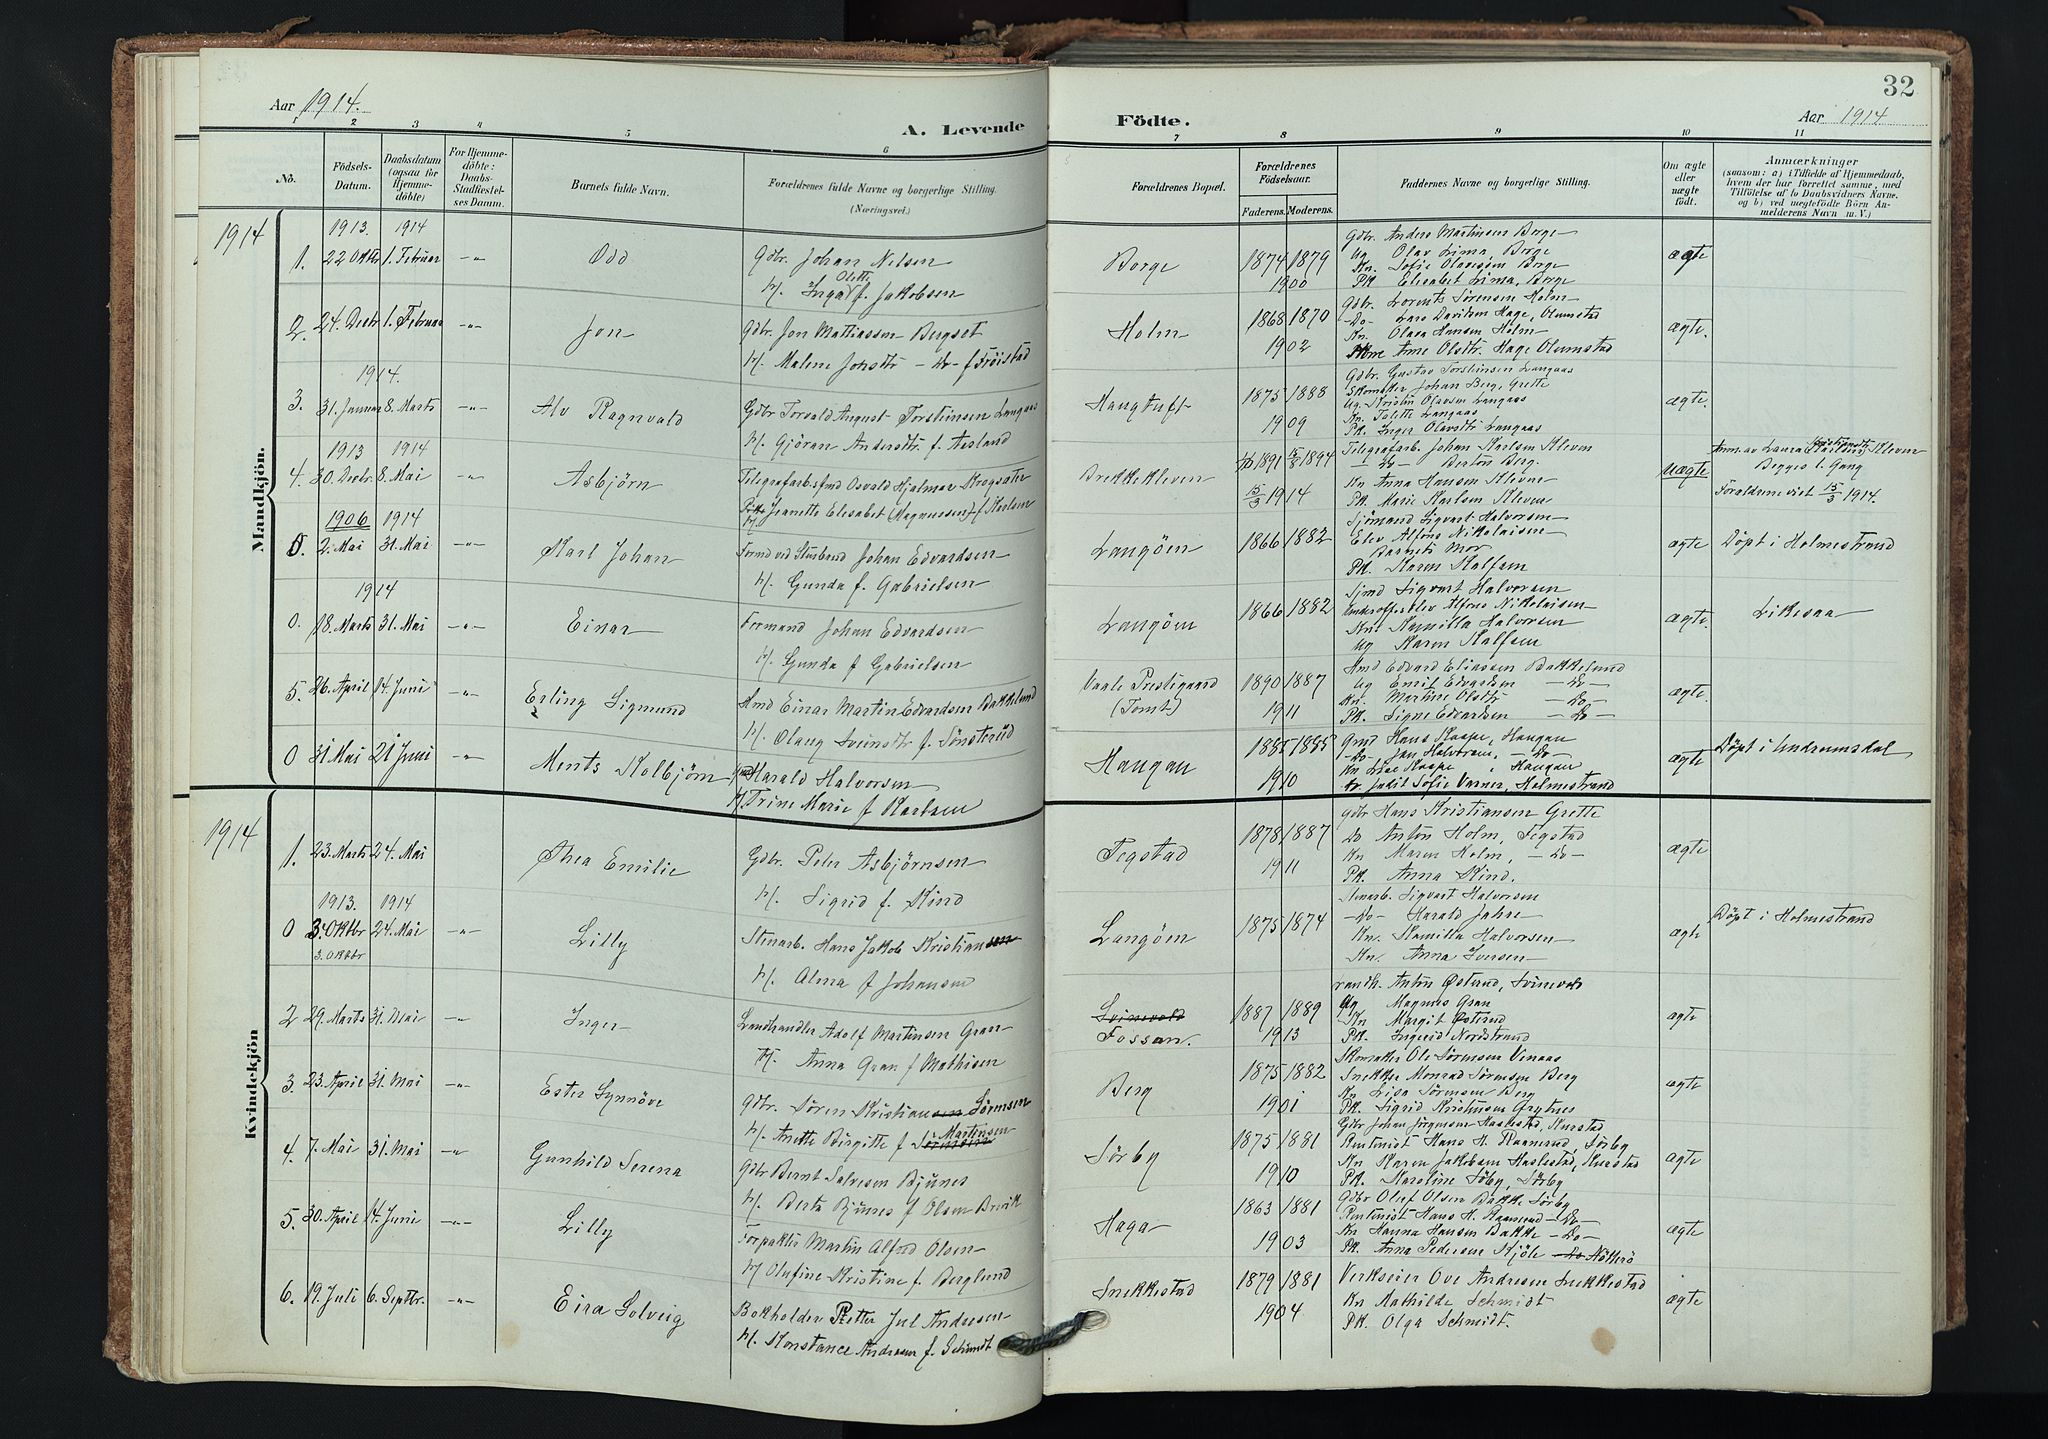 32
Aar 1914.
A. Levende Födte.
Aar 1914
1 2 3 4 5 6 7 8 9 10 11
No.
Födsels-Datum.
Daabsdatum (ogsaa for Hjemme-döbte)
For Hjemme-döbte: Daabs-Stadfæstel-ses Datum.
Barnets fulde Navn.
Forældrenes fulde Navne og borgerlige Stilling. (Næringsvei.)
Forældrenes Bopæl.
Forældrenes Födselsaar.
Faderens. Moderens.
Faddernes Navne og borgerlige Stilling.
Om ægte eller uægte födt.
Anmærkninger
(saasom: a) i Tilfælde af Hjemmedaab, hvem der har forrettet samme, med Tilföielse af to Daabsvidners Navne. og b) ved uægtefödte Börn An-melderens Navn m. V.)
Mandkjön.
1914
1913. 1914
1. 22 Oktbr 1. Februar -"- Odd Gdbr. Johan Nilsen
H/. Inga Olette f. Jakobsen
Borge 1874 1879 1900
Gdbr. Anders Martinsen Borge
Ug Olav Lima, Borge
Kn. Sofie Olavesen Borge
Pk Elisabet Lima, Borge
ægte
2. 24. Decbr 1. Februar -"- Jon Gdbr Jon Mathiassen Bergset
H/. Malene Jonsdtr -Do- f Fröistad
Holm 1868 1870 1902
Gdbr. Lorents Sörensen Holm
-Do- Lars Davidsen Hage, Olumstad
Kn. Olava Hansen Holm
Anne Olsdtr. Hage Olumstad
ægte.
1914.
3. 31. Januar 8. Marts -"- Alv Ragnvald Gdbr Torvald August Torsteinsen Langaas
H/. Gjöran Andersdtr f. Aasland
Haugtuft 1875 1888 1909
Gdbr. Gustav Torsteinsen Langaas
Skomaker Johan Berg, Grette
Ug Kristin Olavsen Langaas
Kn. Talette Langaas
Pk. Inger Olavsdtr Langaas
ægte.
1913 1914
4. 30. Decbr 8. Mai -"- Asbjörn Telegrafarbsfmd Osvald Hjalmar Krogsæter
Jeanette Elisabet (Magnussen) f Karlsen
Brekkekleven 1891 1894
15/3 1914
Telegrafarb. Johan Karlsen Kleven
-Do- Berton Berg.
Kn Anna Hansen Klevne
Pk. Marie Karlsen Kleven
uægte
Anm. av Laura Karlsen, Kleven
Begges 1. Gang
Foraldrene viet 15/3 1914.
1906 1914
0. 2. Mai 31. Mai -"- Karl Johan Formd ved Stenbrud Johan Edvardsen
H/. Gunda f. Gabrielsen
Langöen 1866 1882
Sjömand Sigvart Halvorsen
Elev Alfons Nikolaisen
Barnets Mor
Pk. Karen Kalfsen
ægte
Döpt i Holmestrand
1914
0. 18. Marts 31. Mai -"- Einar Formand Johan Edvardsen
H/. Gunda f Gabrielsen
Langöen 1866 1882
Sjmd Sigvart Halvorsen
Underoffselev Alfons Nikolaisen
Kn. Kamilla Halvorsen
Ug Karen Kalfsen
ægte.
Likesaa
5. 26. April 14. Juni -"- Erling Sigmund Smd Einar Martin Edvardsen Bakkelund
H/. Olaug Svensdtr f. Sönsteröd
Vaale Prestegaard (Tomt) 1890 1887 1911
Smd Edvard Eliassen Bakkelund
Ug Emil Edvardsen -Do-
Kn. Martine Olsdtr -Do-
Pk. Signe Edvardsen -Do-
ægte.
0 31 Mai 21 Juni -"- Ments Kolbjörn Harald Halvorsen
H/ Trine Marie f Karlsen
Haugan 1885 1885 1910
Gmd Hans Kaspe, Haugan
-Do-
Haugan
Varner, Holmestrand
ægte
Döpt i Undrumsdal
Kvindekjön
1914
1. 23. Marts 24. Mai Thea Emilie Gdbr. Peter Asbjörnsen
H/. Sigrid f. Kind
Tegstad 1878 1887 1911
Gdbr Hans Kristiansen Grette
Do Anton Holm, Tegstad
Kn Maren Holm, -Do-
Pk. Anna Kind.
ægte
1913. 1914
0 3. Oktbr 24. Mai -"- Lilly Stenarb. Hans Jakob Kristiansen
3. Oktbr
H/. Alma f Johansen
Langöen 1875 1874
Stenarb. Sigvart Halvorsen
-Do- Harald Jahre
Kn. Kamilla Halvorsen
Kn. Anna Iversen
ægte
Döpt i Holmestrand
2 29. Marts 31. Mai -"- Inger Landhandler Adolf Martinsen Gran
H. Anna Gran f Mathisen
Svinevold
Fossan. 1887 1889 1913
Landh. Anton Östrud, Svinevold
Ug Magnus Gran
Kn Margit Östrud
Pk. Ingrid Nordstrand
ægte
3. 23. April 31. Mai -"- Ester Synnöve Gdbr. Sören Kristiansen Sörensen
H/. Anette Birgitte f Sörensen Martinsen
Berg 1875 1882 1901
Skomaker Ole Sörensen Venaas
Snekker Monrad Sörensen Berg
Kn Lisa Sörensen Berg
Pk. Sigrid Kristensen Grytnes
ægte
4. 7. Mai 31. Mai -"- Gunhild Serena Gdbr Bernt Salvesen Bjünes
H/. Berta Bjünes f Olsen Brevik
Sörby 1875 1881 1910
Gdbr Johan Jörgensen Haslestad, Kurstad
Rentenist Hans H. Ramnerud, Sörby
Kn Karen Jakobsen Haslestad, Kurstad
Pk. Karoline Söby, Sörby
ægte
5. 30. April 14. Juni -"- Lilly Forpakter Martin Alfred Olsen
H/ Olufine Kristine f. Berglund
Haga 1863 1881 1903
Gdbr Oluf Olsen Bakke, Sörby
Rentenist Hans H. Ramnerud -Do-
Kn Hanna Hansen Bakke -Do-
Pk. Anna Pedersen Kjöle Do Nötterö
ægte
6. 19. Juli 6. Septbr. -"- Eira Solveig Bokholder Petter Jul Andresen
H/. Konstance Andresen f. Schmidt
Snekkestad 1879 1881 1904
Verkseier Ove Andresen Snekkestad
Kn Mathilde Schmidt
Pk. Olga Schmidt.
ægte